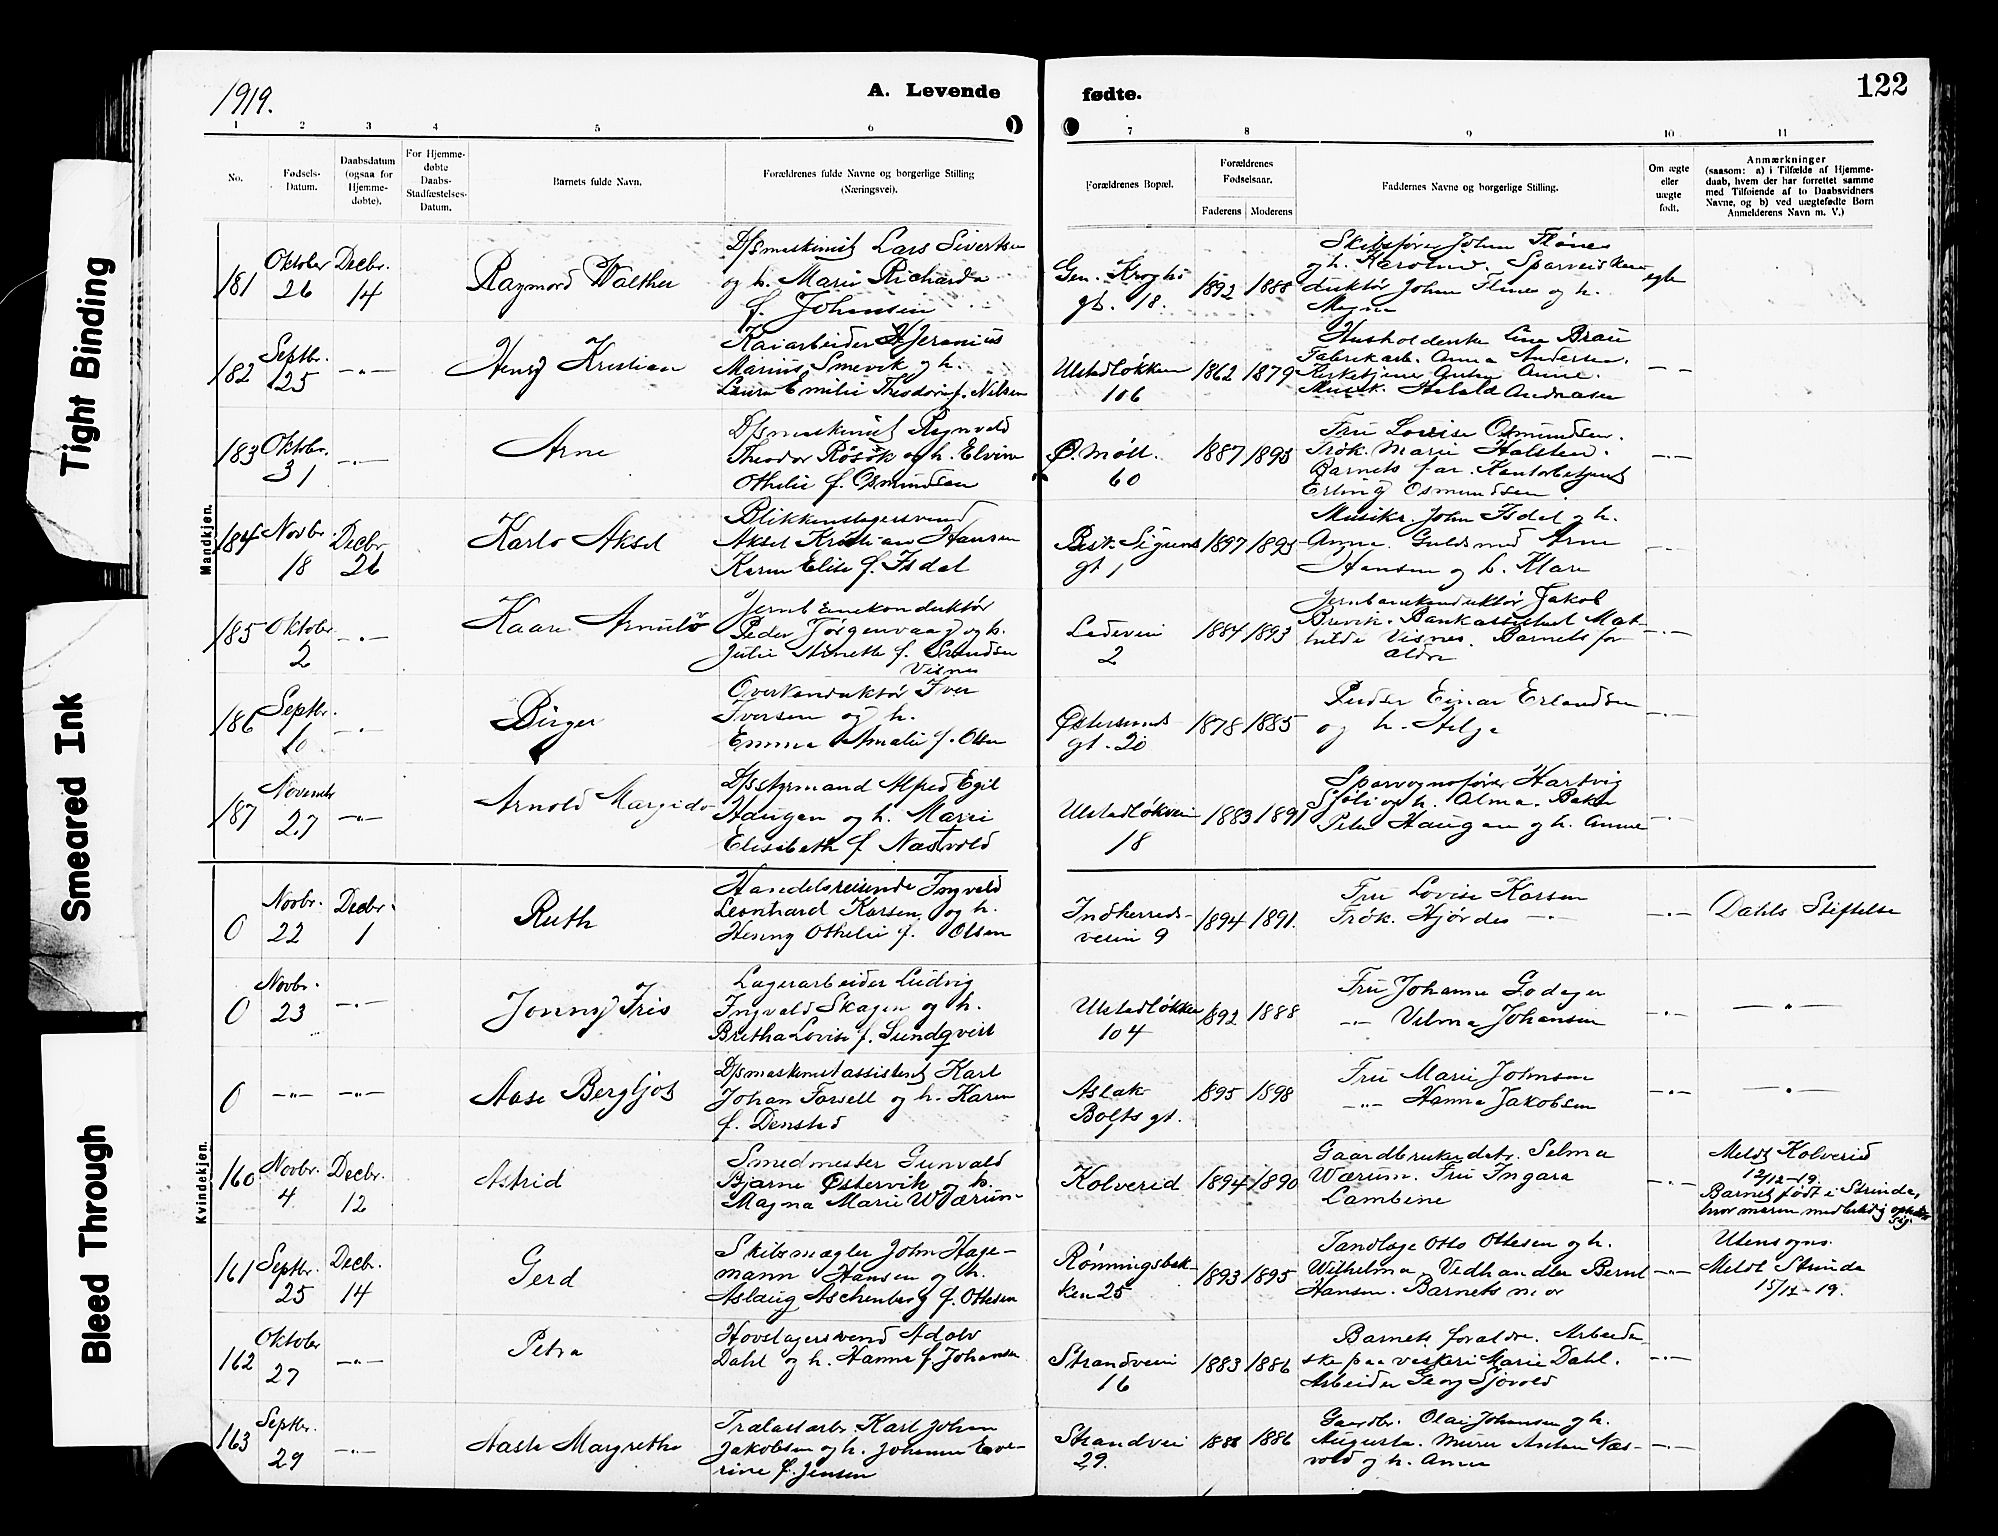 1919.
A. Levende
fødte.
122
1 2 3 4 5 6 7 8 9 10 11
No.
Fødsels-
Datum.
Daabsdatum
(ogsaa for
Hjemme-
døbte).
For Hjemme-
døbte
Daabs-
Stadfæstelses-
Datum.
Barnets fulde Navn.
Forældrenes fulde Navne og borgerlige Stilling
(Næringsvei).
Forældrenes Bopæl.
Forældrenes
Fødselsaar.
Faderens Moderens
Faddernes Navne og borgerlige Stilling.
Om ægte
eller
uægte
født.
Anmærkninger
(saasom: a) i Tilfælde af Hjemme-
daab, hvem der har forrettet samme
med Tilføiende af to Daabsvidners
Navne, og b) ved uægtefødte Børn
Anmelderens Navn m. V.)
Tight Binding
Smeared Ink
Bleed Through
Mandkjøn.
181
Oktober
26
Decbr.
14
Raymord Walther
D/smaskinist Lars Sivertsen
og h. Marie Richarda
f. Johansen
Gen. Kroghs
gt. 18.
1892 1888
Skibsfører Johan
og h. Karoline. Sporveiskon-
duktør Johan og h.
Magna
egte
182
Septbr.
25
-"-
Henry Kristian
Kaiarbeider Jeronius
Marius Smevik og h.
Laura Emilie Theodora f. Nilsen
Ulstadløkken
106
1862 1879
Husholderske Line Brau
Fabrikarb. Anna Andersen.
Kirketjener Anton Aune.
Musik. Harald Andreasen
-"-
183
Oktobr.
31
-"-
Arne
D/smaskinist Reynvald
Theodor Røsok og h. Elvine
Othelie f. Osmundsen
Ø. Møll.
60
1887 1895
Fru Lovise Osmundsen.
Frøk. Marie Halsten.
Barnets far. Kontorbetjent
Erling Osmundsen
-"-
184
Novbr.
18
Decbr.
26
Karlo Aksel
Blikkenslagersvend
Aksel Kristian Hansen
Karen Elise f. Isdal
Bisk. Sigurds
gt 1
1897 1895
Musikr. John Isdal og h.
Anna. Guldsmed Arne
Hansen og h. Klara
-"-
185
Oktober
2
-"-
Kaare Arnulv
Jernbanekonduktør
Peder Jørgenvaag og h.
Julie f. Svendsen
Visnes
Ladeveien
2
1884 1893
Jernbanekonduktør Jakob
Brevik. Bankassistent Mat-
hilde Visnes. Barnets for-
ældre
-"-
186
Septbr.
10
-"-
Birger
Overkonduktør Iver
Iversen og h.
Emma Amalie f. Olsen
Østersunds
gt. 20
1878 1885
Pudser Einar Erlandsen
og h. Helga
-"-
187
November
27
-"-
Arnold Margido
D/sstyrmand Alfred Egil
Haugen og h. Marie
Elisabeth f. Næstvold
Ulstadløkvei
18
1883 1891
Sporvognsfører Hartvig
Sjøli og h. Alma. Baker
Peter Haugan og h. Anna
-"-
Kvindekjøn.
0
Novbr.
22
Decbr.
1
Ruth
Handelsreisende Ingvald
Leonhard Karsen og h.
Henny Othelie f. Olsen
Indherreds-
veien 9
1894 1891.
Fru Lovise Karsen
Frøk. Hjørdes -"-
-"-
Dahls Stiftelse
0
Novbr.
23
-"-
Jonny Iris
Lagerarbeider Ludvig
Ingvald Skagen og h.
Bretha Lovise f. Sundqvist
Ulstadløkken
104
1892 1888
Fru Johanne Godager
-"- Vilma Johansen
-"-
-"-
0
-"-
-"-
Aase Bergljot
D/smaskinistassistent Karl
Johan Forsell og h. Karen
f. Denstad
Aslak
Bolts gt.
1895 1898
Fru Marie Johnsen
-"- Hanna Jakobsen
-"-
-"-
160
Novbr.
4
Decbr.
12
Astrid
Smedmester Gunvald
Bjarne Østervik og h.
Magna Marie Wærum
Kolvereid
1894 1890
Gaardbrukerdatr. Selma
Wærum. Fru Ingara
Lambene
-"-
Meldt Kolvereid
12/12-19.
Barnet født i Strinda,
hvor moren midlertidig opholdt
sig.
161
Septbr.
25
Decbr.
14
Gerd
Skibsmægler John Hage-
mann Hansen og h.
Aslaug Aschenberg f. Ottesen
Rønningsbak-
ken 25
1893 1895
Tandlæge Otto Ottesen og h.
Wilhelma. Vedhandler Bernt
Hansen. Barnets mor
-"-
Utensogns.
Meldt Strinda
15/12-19.
162
Oktober
27
-"-
Petra
Hovslagersvend Adolv
Dahl og h. Hanna f. Johansen
Strandveien
16
1883 1886
Barnets forældre. Arbeider-
ske paa veskeri Marie Dahl.
Arbeider Georg Sjøvold
-"-
163
Septbr.
29
-"-
Aasta Margrethe
Trælastarb. Karl Johan
Jakobsen og h. Johanna Eve-
rine f. Jensen
Strandvei
29.
1888 1886
Gaardbr. Olai Johansen og h.
Augusta. Murer Anton Næs-
vold og h. Anna
-"-